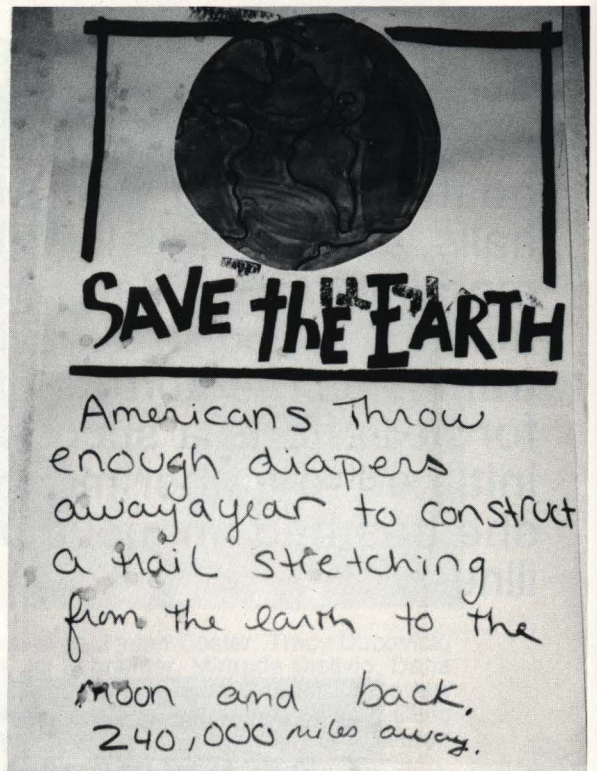 SAVE the EARTH
Americans Throw
enough diapers
away a year to construct
a trail stretching
from the earth to the
moon and back.
240,000 miles away.